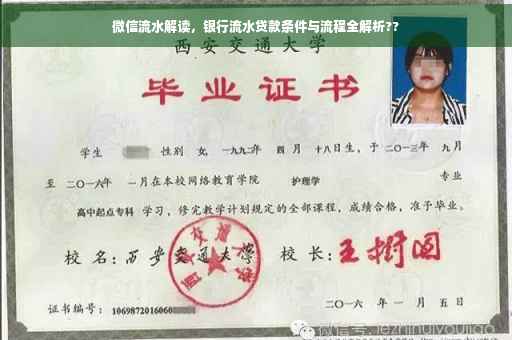 微信流水解读，银行流水贷款条件与流程全解析??
西安交通大学
毕业证书
学生 性别 女, 一九九二年 四 月 十八日生, 于 二〇一三年 九月
至 二〇一六年 一月在本校网络教育学院 护理学 专业
高中起点专科 学习, 修完教学计划规定的全部课程, 成绩合格, 准予毕业。
校 名: 西安交通大学 校 长: 王树国
证书编号: 1069872016060
二〇一六 年 一 月 五 日
微信号: jezhinuiyoujiao